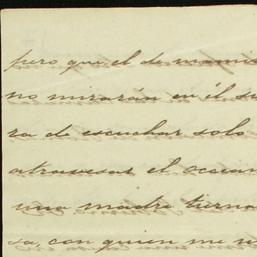 pero que el de mami
no mirarán en él su
ra de escuchar solo
atravesar el ocean
una madre tierna
sa, con quien me u